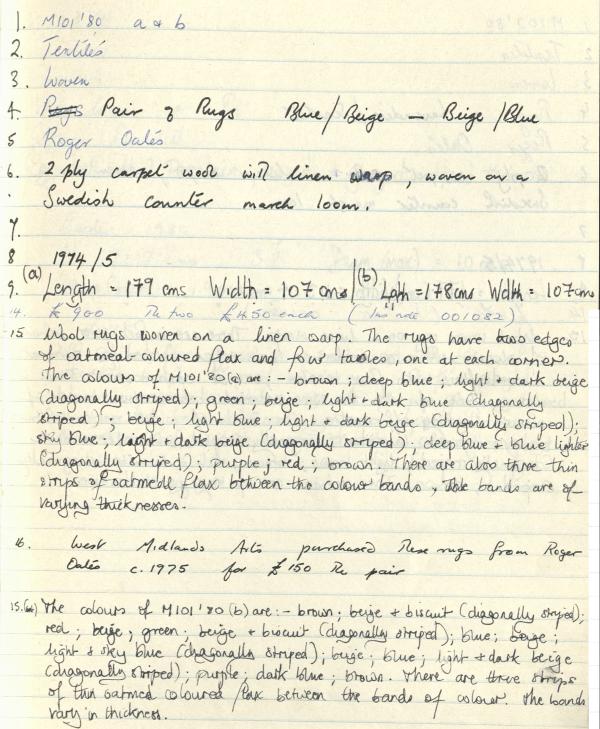 1. M101'80 a & b
2. Textiles
3. Woven
4. Rugs Pair of Rugs Blue/Beige — Beige/Blue
5 Roger Oates
6. 2 ply carpet wool with linen warp, woven on a
Swedish counter march loom.
7.
8 1974/5
9. (a) Length = 179 cms Width = 107 cms (b) Lgth = 178cms Wdth = 107cms
14. £900 The two £450 each (Ins note 001082)
15 Wool rugs woven on a linen warp. The rugs have two edges
of oatmeal-coloured flax and four tassles, one at each corner.
The colours of M101'80(a) are:- brown; deep blue; light + dark beige
(diagonally striped); green; beige; light + dark blue (diagonally
striped); beige; light blue; light + dark beige (diagonally striped);
sky blue; light + dark beige (diagonally striped); deep blue + blue lighter
(diagonally striped); purple; red; brown. There are also three thin
strips of oatmeal flax between the colour bands, The bands are of
varying thicknesses.
16. West Midlands Arts purchased these rugs from Roger
Oates c.1975 for £150 the pair
15.(a) The colours of M101'80(b) are:- brown; beige + biscuit (diagonally striped);
red; beige, green; beige + biscuit (diagonally striped); blue; beige;
light & sky blue (diagonally striped); beige; blue; light + dark beige
(diagonally striped); purple; dark blue; brown. There are three strips
of thin oatmeal coloured flax between the bands of colour. The bands
vary in thickness.